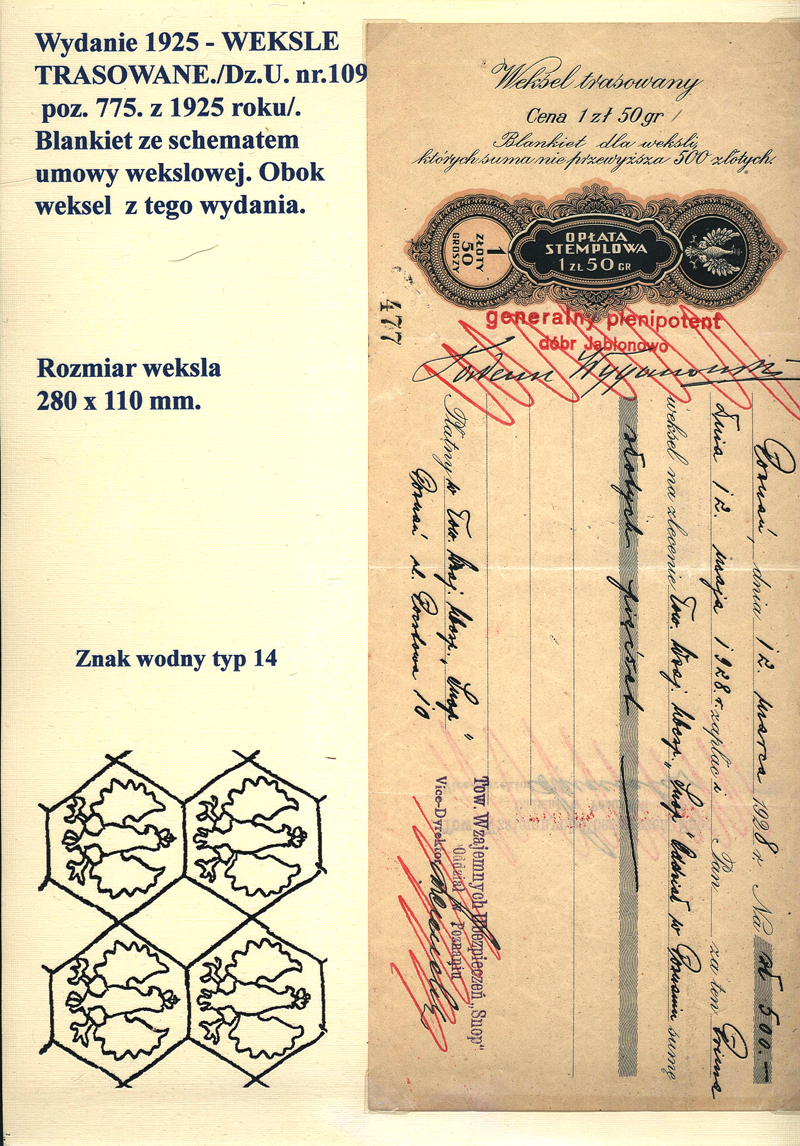 Wydanie 1925 - WEKSLE
TRASOWANE./Dz.U. nr.109
poz. 775. z 1925 roku/.
Blankiet ze schematem
umowy wekslowej. Obok
weksel z tego wydania.
Rozmiar weksla
280 x 110 mm.
Znak wodny typ 14
Weksel trasowany
Cena 1 zł 50 gr
Blankiet dla weksli,
których suma nie przewyższa 500 złotych.
1
ZŁOTY
50
GROSZY
OPŁATA
STEMPLOWA
1 ZŁ 50 GR
477
generalny plenipotent
dóbr Jabłonowo
Poznań, dnia 12. marca 1928 r. Na zł 500.—
Dnia 12. maja 1928 r. zapłaci Pan za ten Prima
weksel na zlecenie Tow. Wzaj. Ubezp. „Snop" Oddział w Poznaniu sumę
złotych pięćset
Płatny w Tow. Wzaj. Ubezp. „Snop"
Poznań ul. Pocztowa 10
Tow. Wzajemnych Ubezpieczeń „Snop"
Oddział w Poznaniu
Vice-Dyrektor